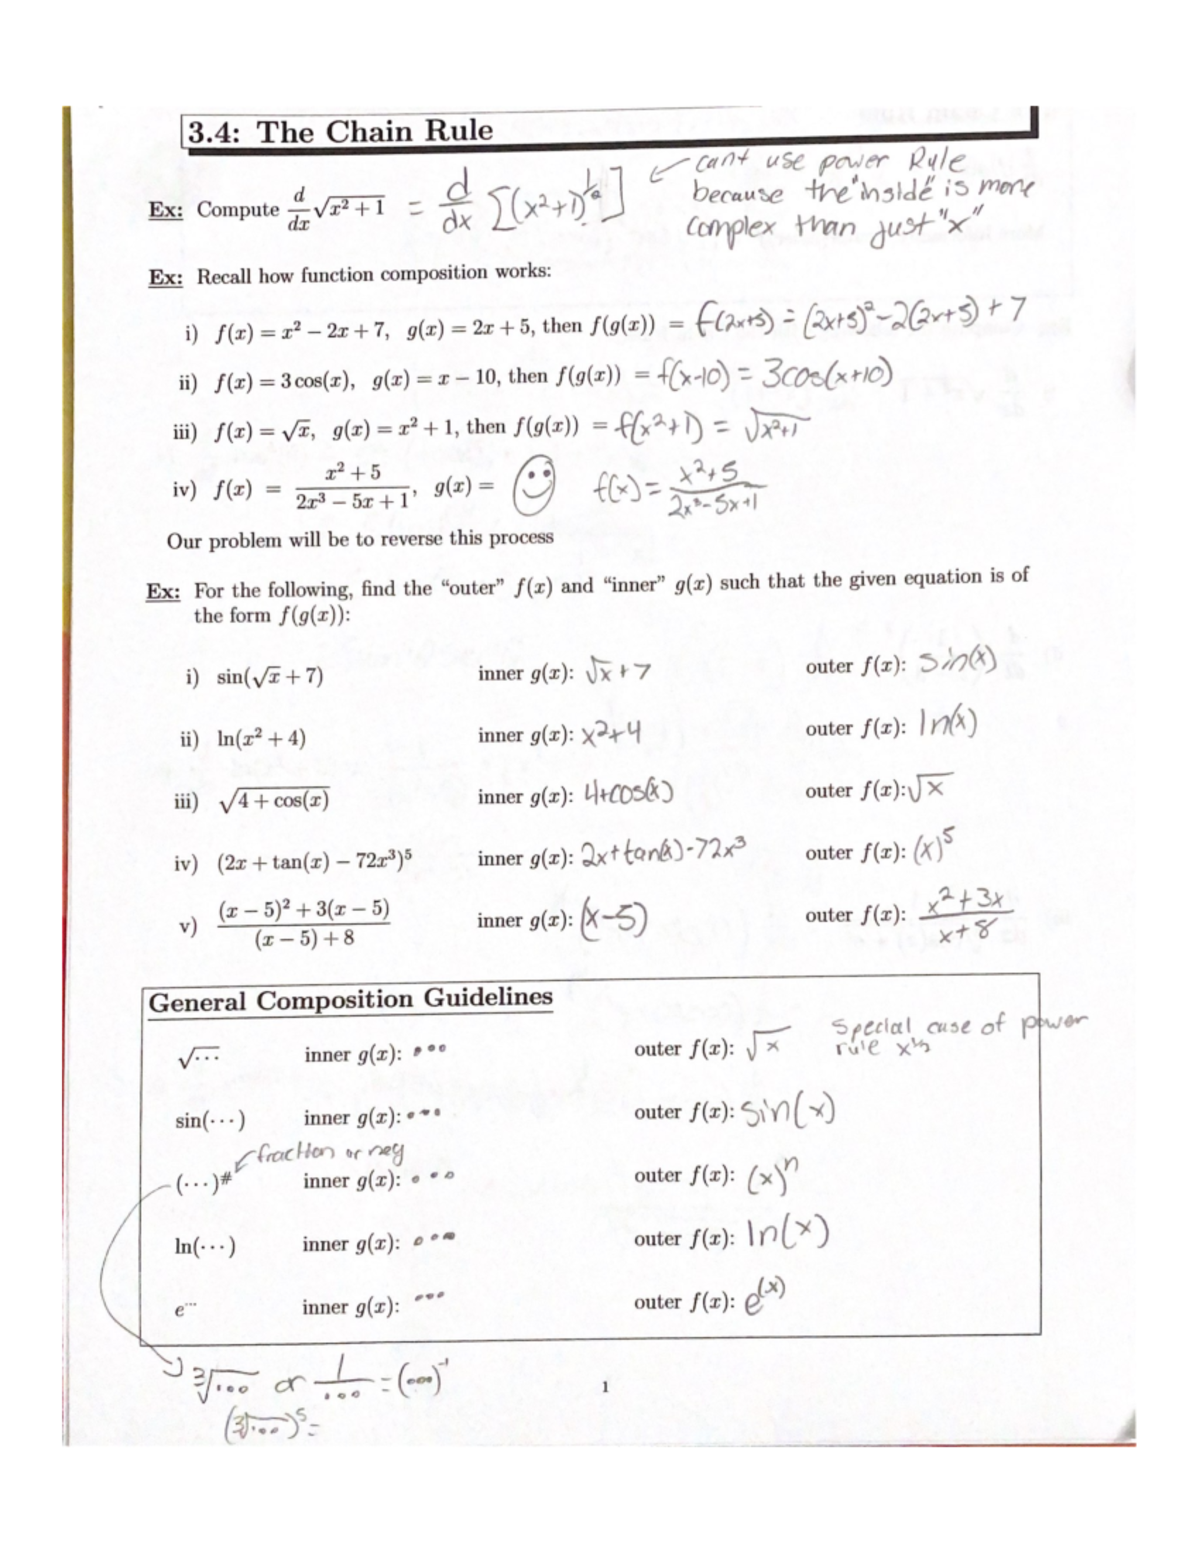 3.4: The Chain Rule
Ex: Compute d/dx √(x² + 1) = d/dx [(x²+1)^½] ← cant use power Rule
because the "inside" is more
complex than just "x"
Ex: Recall how function composition works:
i) f(x) = x² − 2x + 7, g(x) = 2x + 5, then f(g(x)) = f(2x+5) = (2x+5)² − 2(2x+5) + 7
ii) f(x) = 3 cos(x), g(x) = x − 10, then f(g(x)) = f(x-10) = 3cos(x+10)
iii) f(x) = √x, g(x) = x² + 1, then f(g(x)) = f(x²+1) = √(x²+1)
iv) f(x) = (x² + 5)/(2x³ − 5x + 1), g(x) = ☺ f(☺) = (x²+5)/(2x³-5x+1)
Our problem will be to reverse this process
Ex: For the following, find the “outer” f(x) and “inner” g(x) such that the given equation is of
the form f(g(x)):
i) sin(√x + 7) inner g(x): √x + 7 outer f(x): sin(x)
ii) ln(x² + 4) inner g(x): x²+4 outer f(x): ln(x)
iii) √(4 + cos(x)) inner g(x): 4+cos(x) outer f(x): √x
iv) (2x + tan(x) − 72x³)⁵ inner g(x): 2x+tan(x)-72x³ outer f(x): (x)⁵
v) ((x − 5)² + 3(x − 5))/((x − 5) + 8) inner g(x): (x-5) outer f(x): (x²+3x)/(x+8)
General Composition Guidelines
√··· inner g(x): ••• outer f(x): √x Special case of power
rule x^½
sin(···) inner g(x): ••• outer f(x): sin(x)
← fraction or neg
(···)^# inner g(x): ••• outer f(x): (x)^n
ln(···) inner g(x): ••• outer f(x): ln(x)
e^··· inner g(x): ••• outer f(x): e^(x)
∛··· or 1/··· = (•••)^-1
(∛···)⁵ =
1